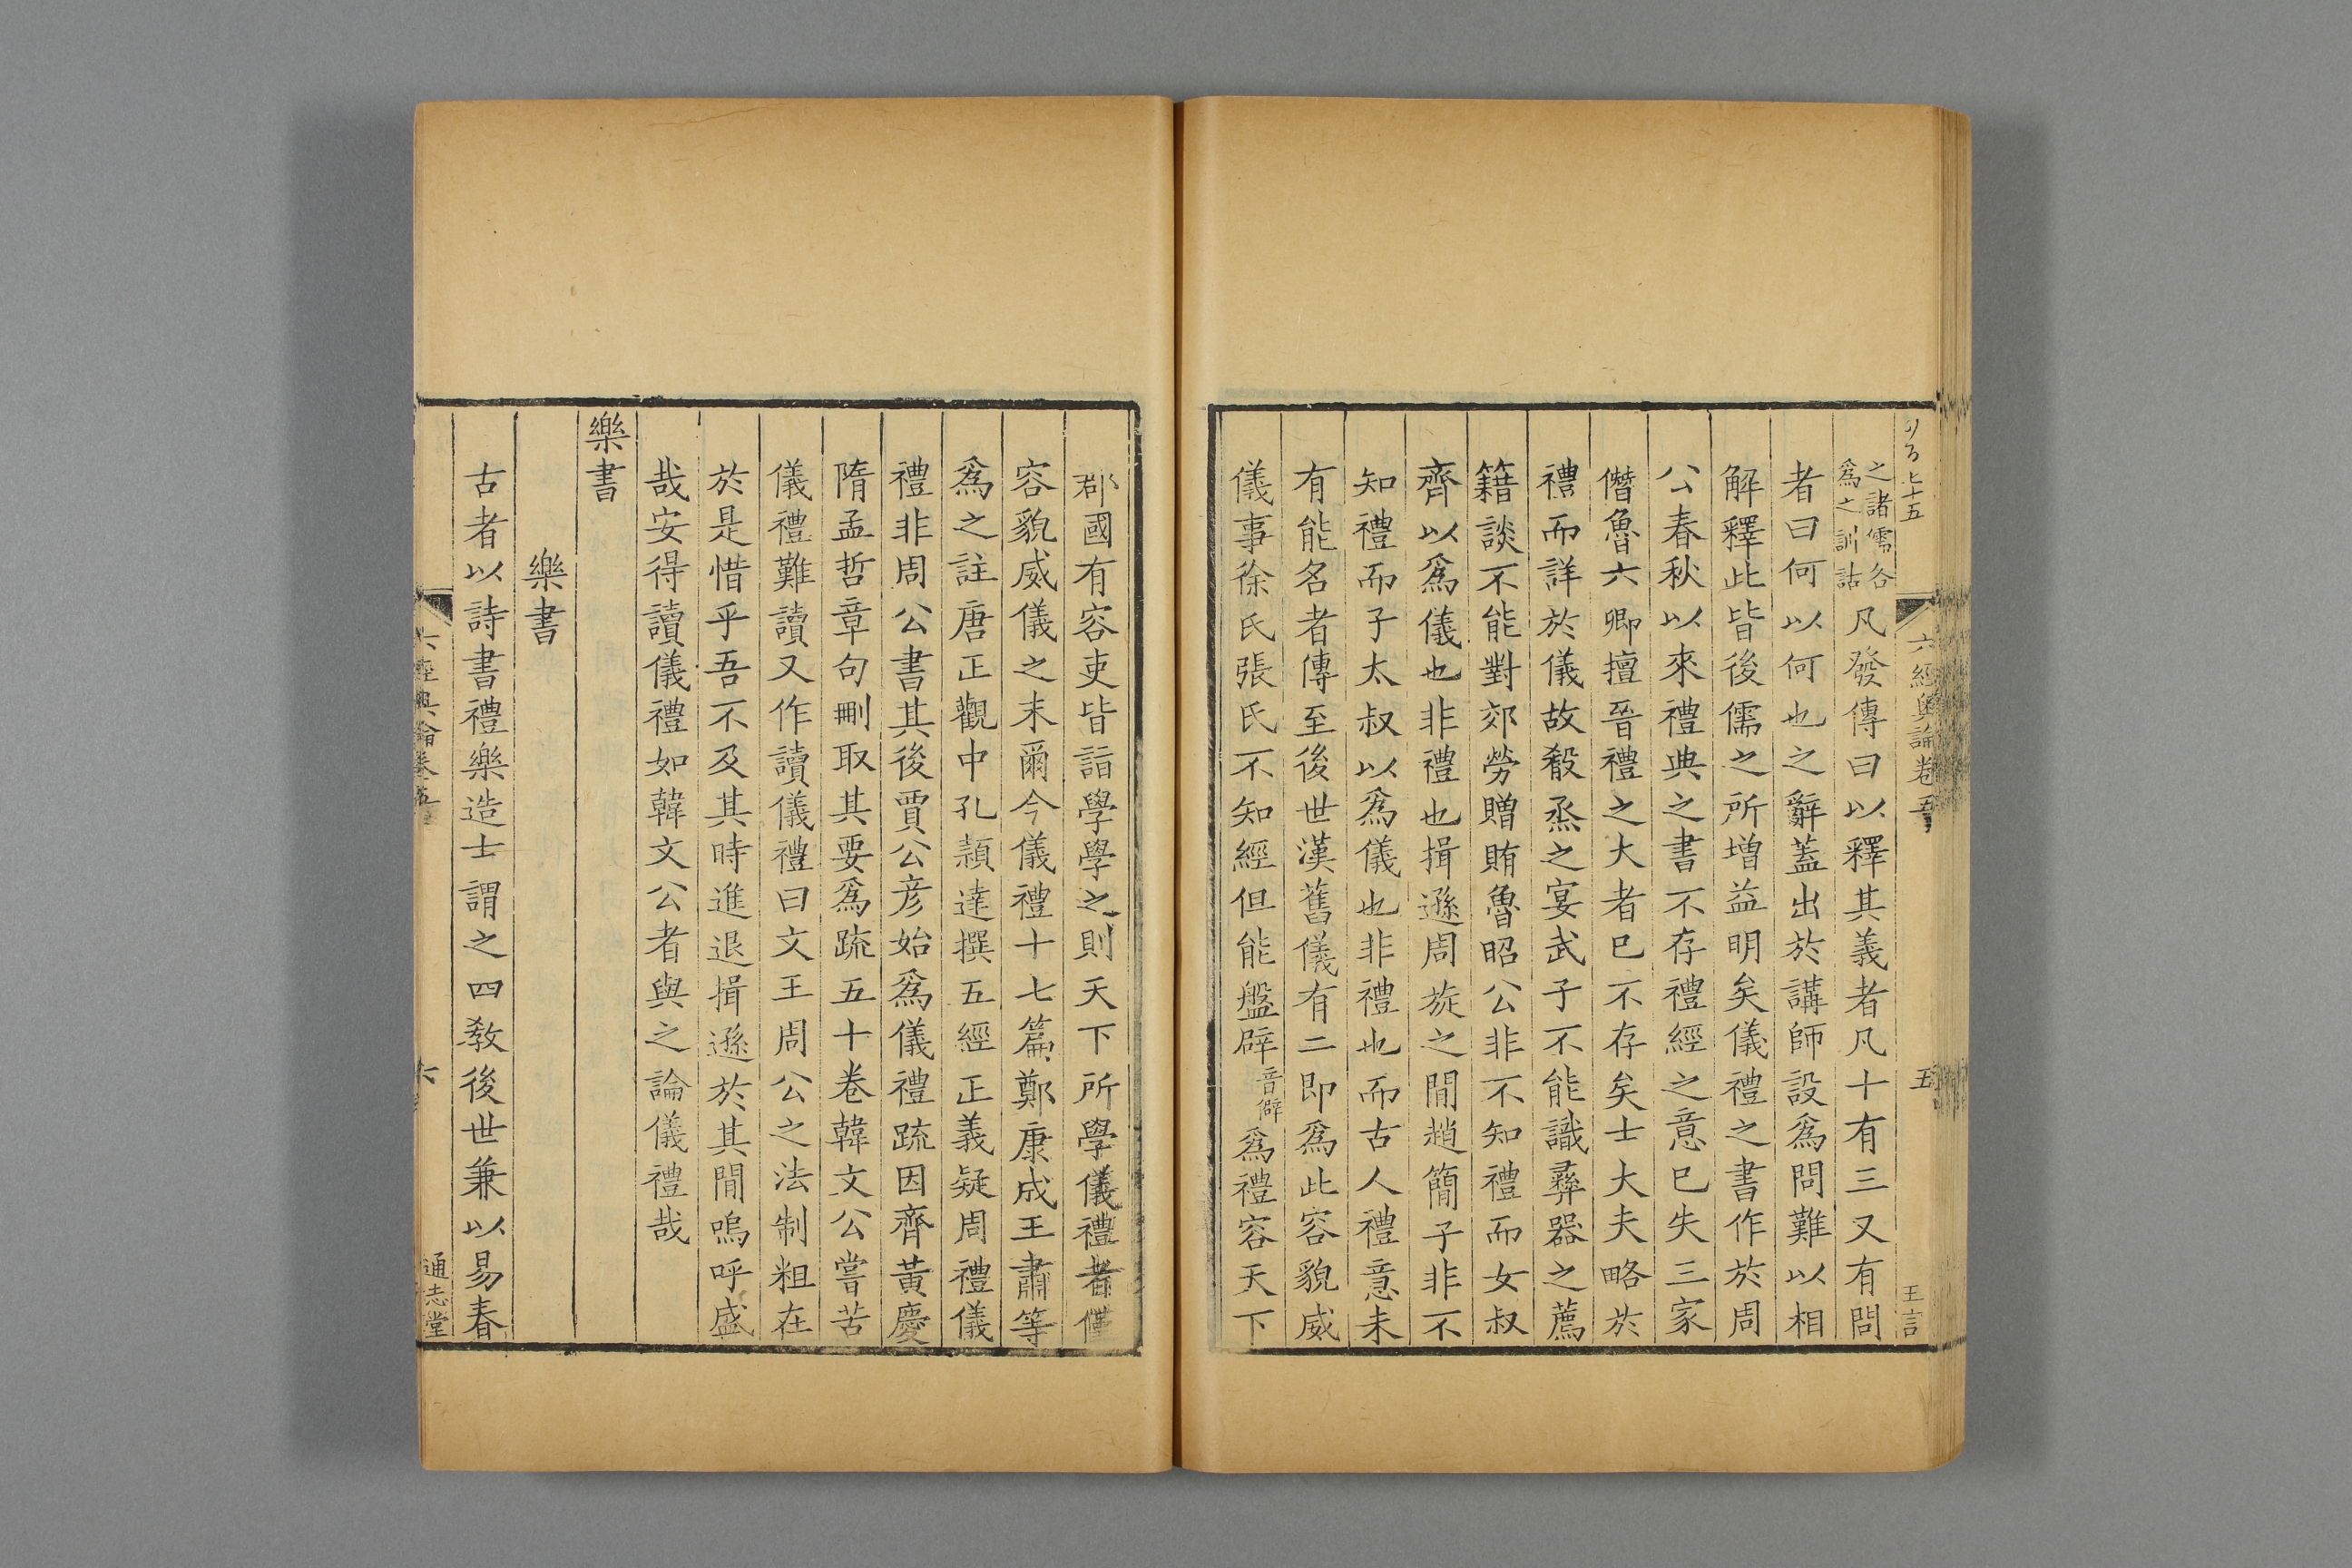 六經奧論卷五
五
王言
之諸儒各
爲之訓詁
凡發傳曰以釋其義者凡十有三又有問
者曰何以何也之辭蓋出於講師設爲問難以相
解釋此皆後儒之所增益明矣儀禮之書作於周
公春秋以來禮典之書不存禮經之意已失三家
僭魯六卿擅晉禮之大者已不存矣士大夫略於
禮而詳於儀故殽烝之宴武子不能識彝器之薦
籍談不能對郊勞贈賄魯昭公非不知禮而女叔
齊以爲儀也非禮也揖遜周旋之閒趙簡子非不
知禮而子太叔以爲儀也非禮也而古人禮意未
有能名者傳至後世漢舊儀有二即爲此容貌威
儀事徐氏張氏不知經但能盤辟音僻爲禮容天下
郡國有容吏皆詣學學之則天下所學儀禮者僅
容貌威儀之末爾今儀禮十七篇鄭康成王肅等
爲之註唐正觀中孔頴達撰五經正義疑周禮儀
禮非周公書其後賈公彦始爲儀禮疏因齊黃慶
隋孟哲章句刪取其要爲疏五十卷韓文公嘗苦
儀禮難讀又作讀儀禮曰文王周公之法制粗在
於是惜乎吾不及其時進退揖遜於其閒嗚呼盛
哉安得讀儀禮如韓文公者與之論儀禮哉
樂書
樂書
古者以詩書禮樂造士謂之四教後世兼以易春
六經奧論卷五
六
通志堂